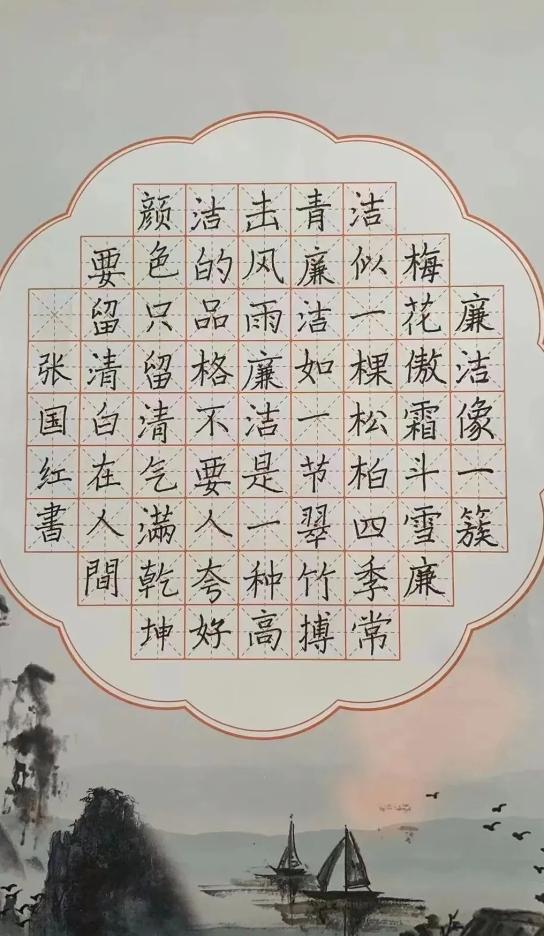 廉洁像一簇
梅花傲霜斗雪廉
洁似一棵松柏四季常
青廉洁如一节翠竹搏
击风雨廉洁是一种高
洁的品格不要人夸好
颜色只留清气满乾坤
要留清白在人間
张国红書